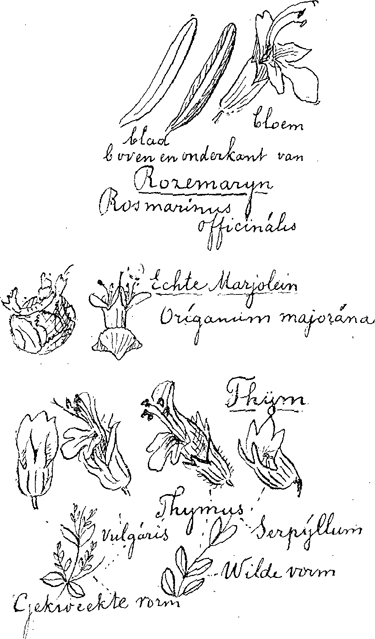 blad
bloem
boven en onderkant van
Rozemaryn
Rosmarínus
officinális
Echte Marjolein
Oríganum majorána
Thÿm
Thymus
vulgáris
Serpýllum
Wilde vorm
Gekweekte vorm